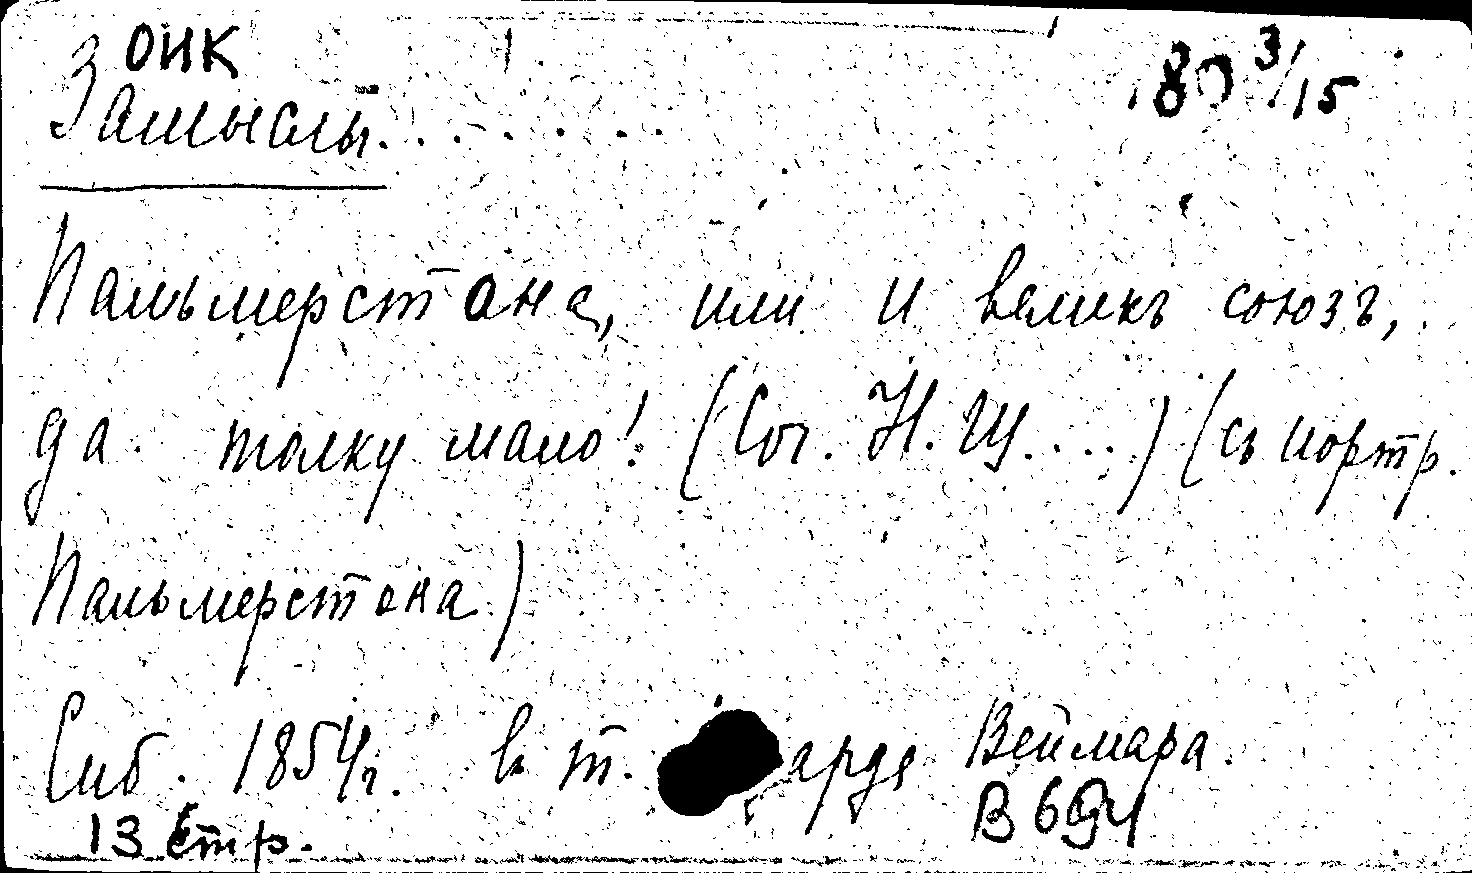 ОИК
80 3/15
Замыслы.......
Пальмерстона, или и великъ союзъ,
да толку мало! (Соч. Н. Щ....) (съ портр.
Пальмерстона)
Спб. 1854г. в т. Веймара.
13 стр. В 694